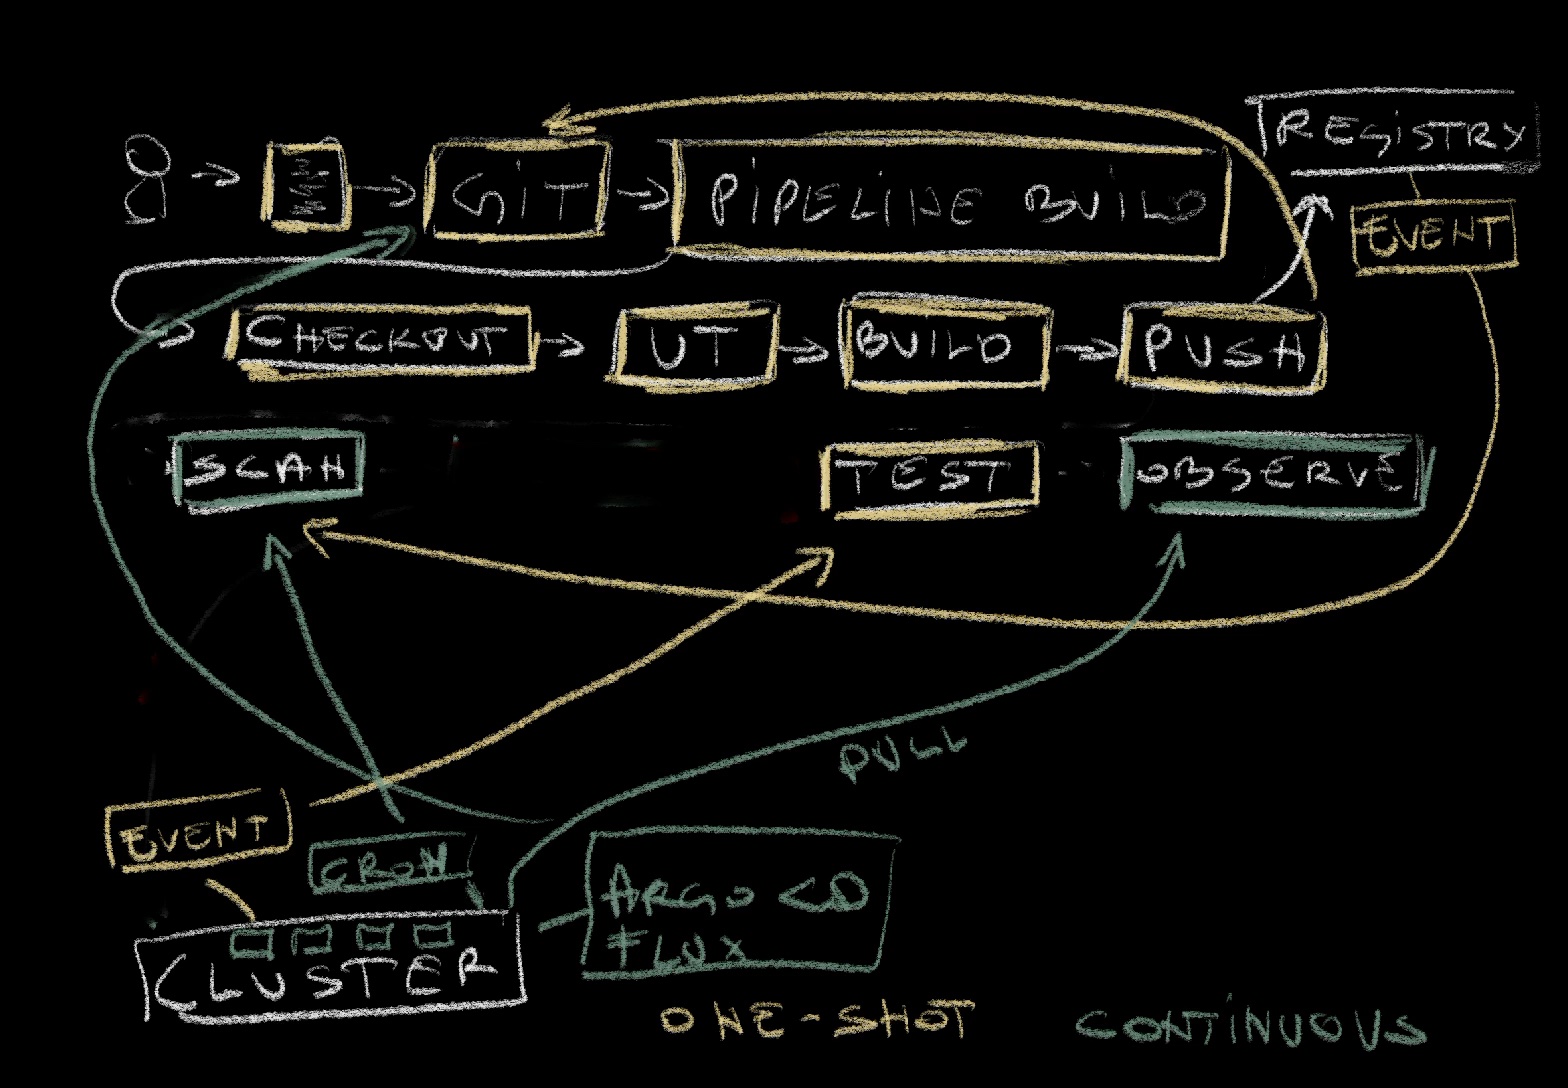 REGISTRY
GIT
PIPELINE BUILD
EVENT
CHECKOUT
UT
BUILD
PUSH
SCAN
TEST
OBSERVE
PULL
EVENT
CRON
ARGO CD
FLUX
CLUSTER
ONE-SHOT
CONTINUOUS